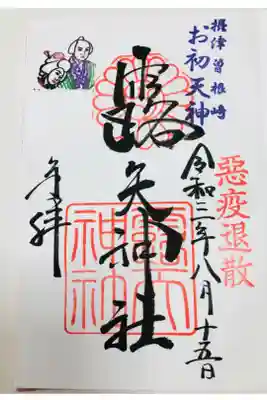 摂津 曽根崎
お初天神
惡疫退散
令和二年八月十五日
露天神社
奉拝